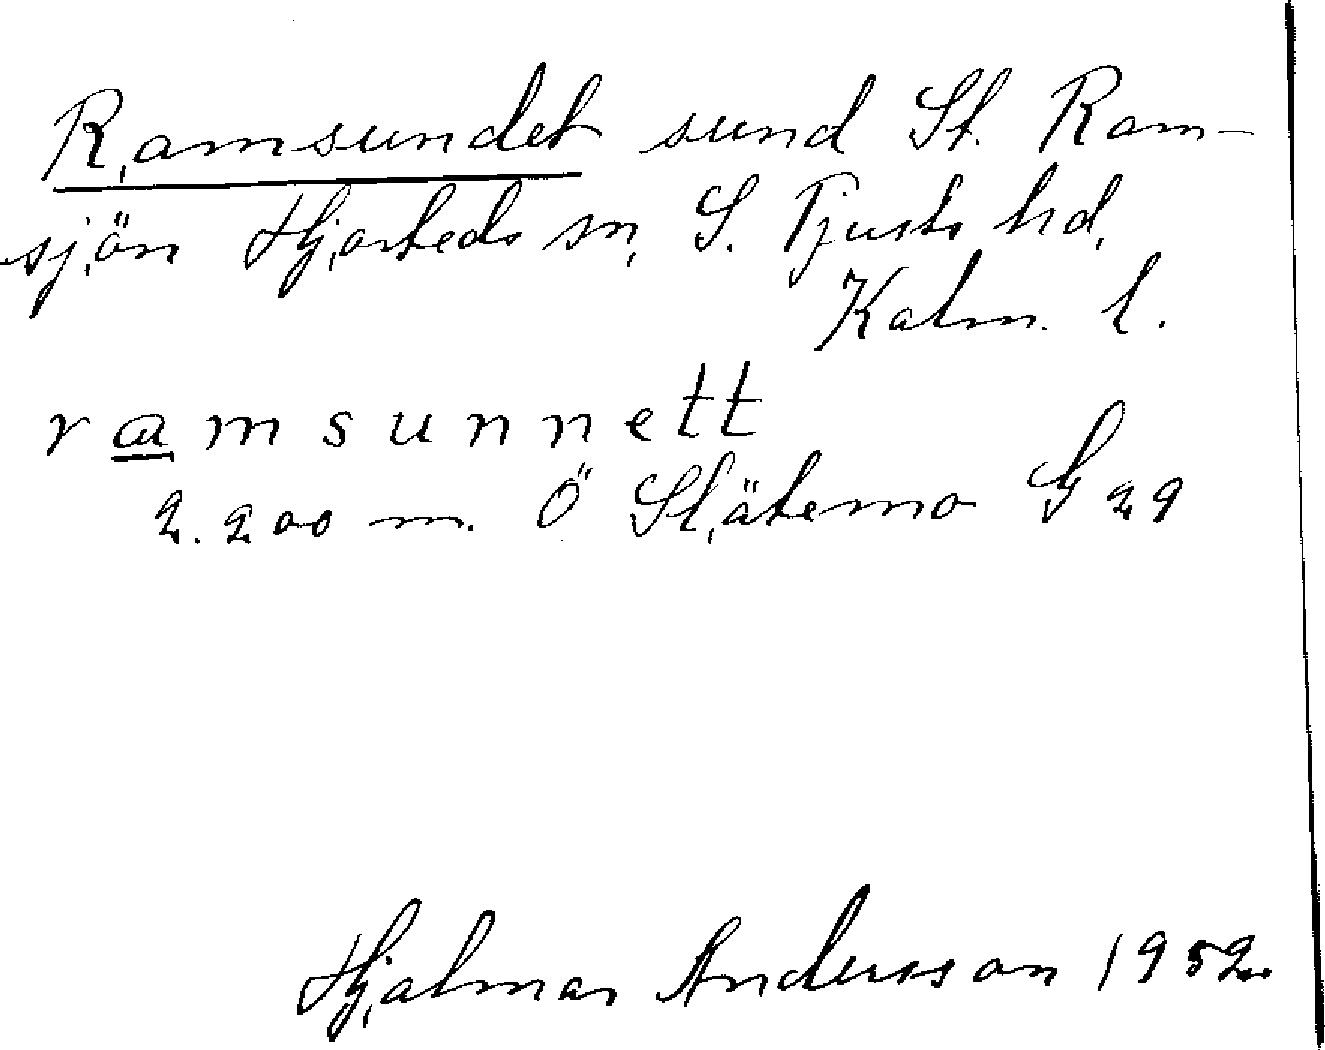 Ramsundet sund St. Ram-
sjön Hjorteds sn, S. Tjusts hd,
Kalm. l.
ramsunnett
2.200 m. Ö Slätemo G 29
Hjalmar Andersson 1952.